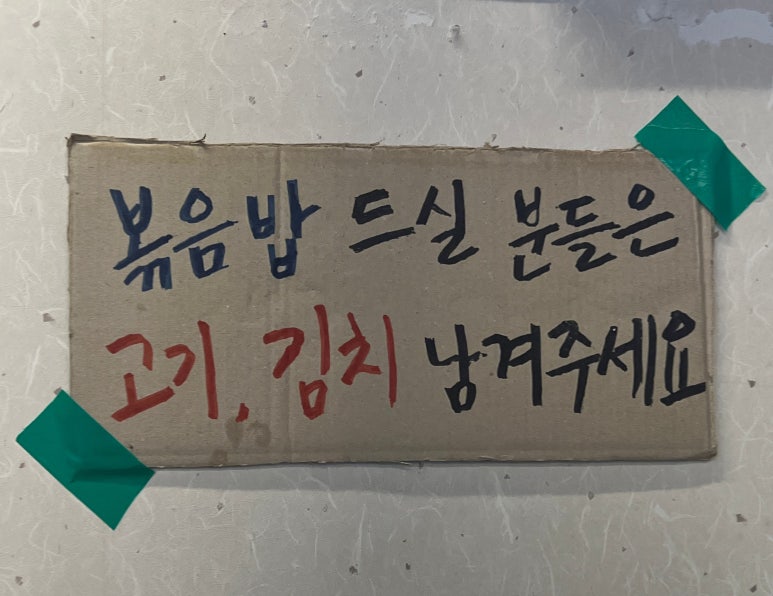 볶음밥 드실 분들은
고기, 김치 남겨주세요